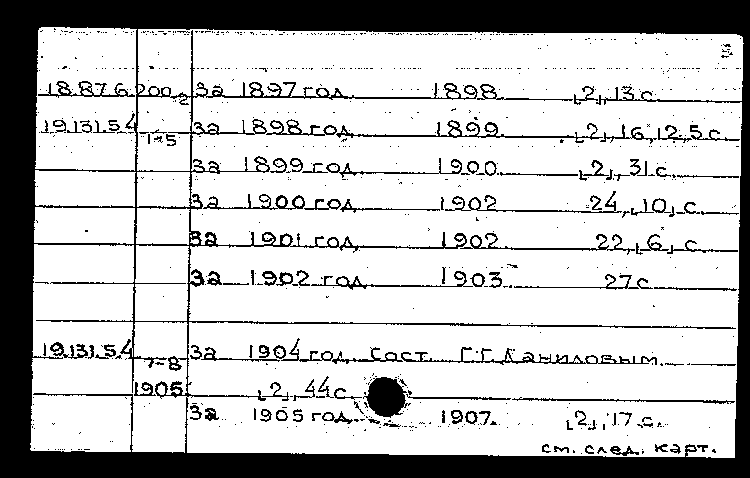 18.87.6.200 2 за 1897 год. 1898. [2], 13 с.
19.131.5.4 1-5 за 1898 год. 1899. [2], 16, 12, 5 с.
за 1899 год 1900. [2], 31 с.
за 1900 год 1902 24, [10] с.
за 1901 год. 1902. 22, [6] с.
за 1902 год. 1903. 27 с.
19.131.5.4 7-8 за 1904 год. Сост. Г.Г. Даниловым.
1905 [2], 44 с.
за 1905 год. 1907. [2], 17 с.
см. след. карт.